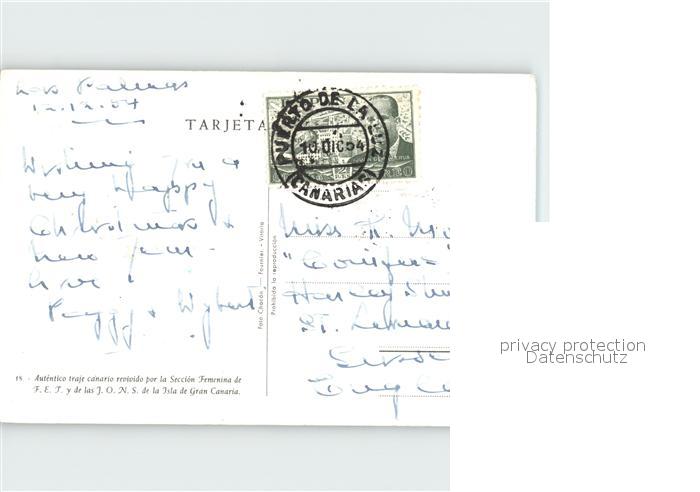 Las Palmas
12.12.54
TARJETA
PUERTO DE LA LUZ
10 DIC 54
(CANARIAS)
CORREO
Wishing you a
very Happy
Christmas &
New Year -
Love
Peggy &
Miss
"Conifers"
Harvey
St. Leonards
Sussex
England
Foto Chacón. Fournier - Vitoria
Prohibida la reproducción
18. - Auténtico traje canario revivido por la Sección Femenina de
F. E. T. y de las J. O. N. S. de la Isla de Gran Canaria.
privacy protection
Datenschutz